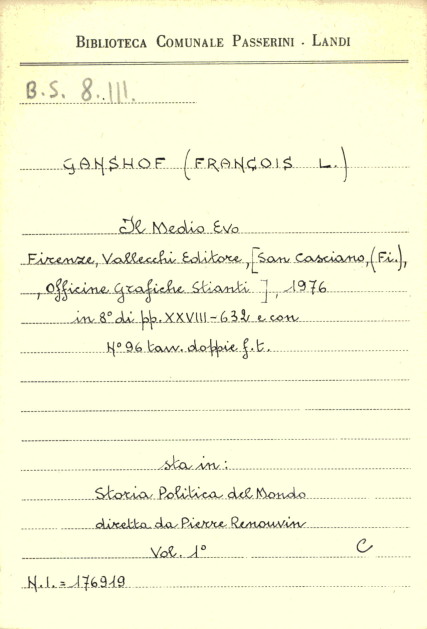 BIBLIOTECA COMUNALE PASSERINI - LANDI
B.S. 8.III.
GANSHOF (FRANÇOIS L.)
Il Medio Evo
Firenze, Vallecchi Editore, [San Casciano, (Fi.),
, Officine Grafiche Stianti ], 1976
in 8° di pp. XXVIII-632 e con
N° 96 tav. doppie f.t.
sta in:
Storia Politica del Mondo
diretta da Pierre Renouvin
Vol. 1° C
N.I. = 176919